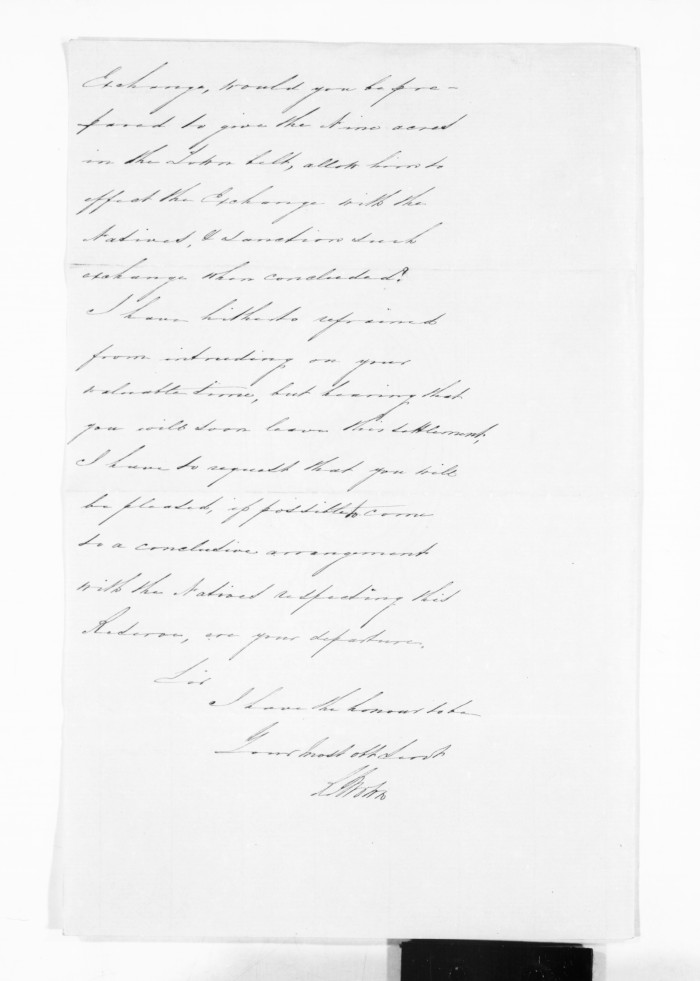 Exchange, would you be pre-
pared to give the Nine acres
in the Town belt, allow him to
effect the Exchange with the
Natives, & sanction such
exchange when concluded?
I have hitherto refrained
from intruding on your
valuable time, but hearing that
you will soon leave this settlement,
I have to request that you will
be pleased, if possible to come
to a conclusive arrangement
with the Natives respecting this
Reserve, ere your departure.
Sir
I have the honour to be
Your most obt Servt